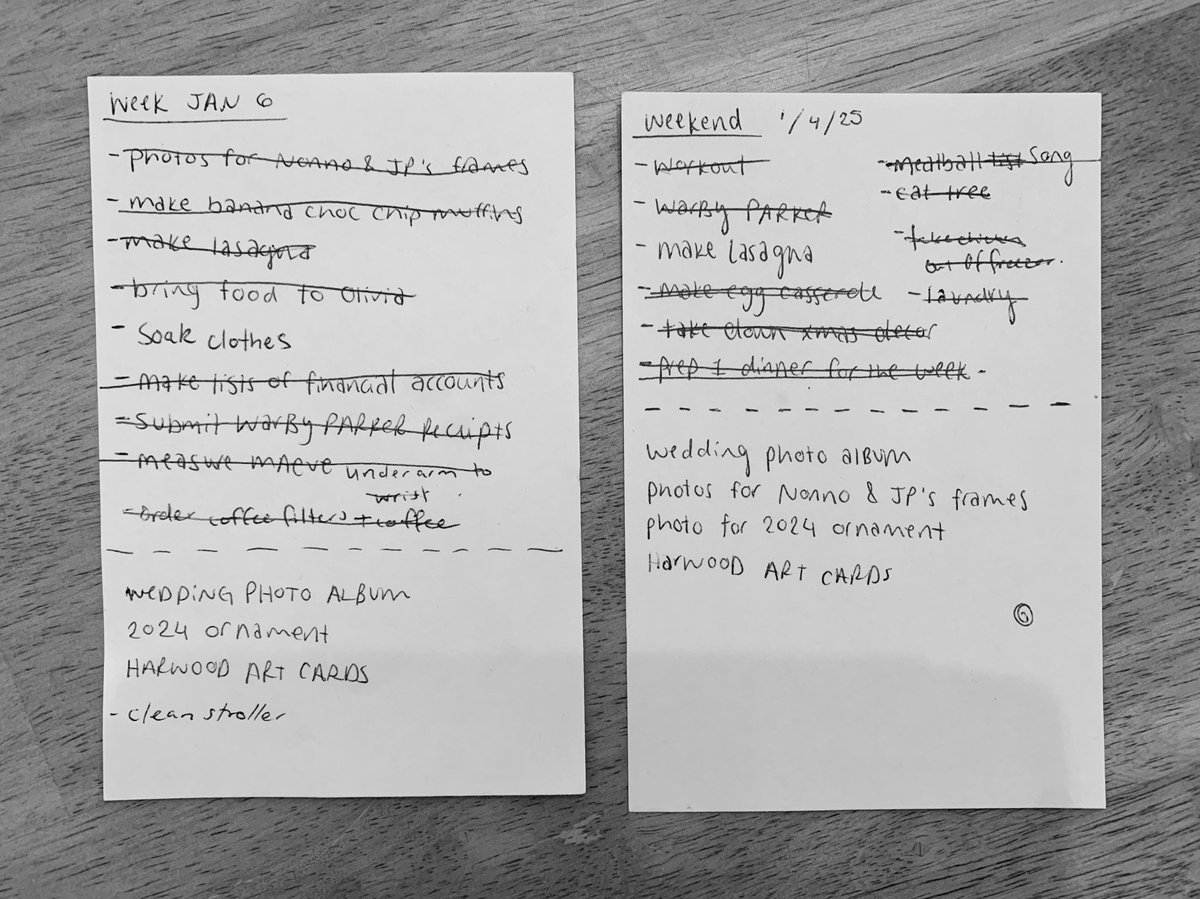 week JAN 6
- photos for Nonno & JP's frames
- make banana choc chip muffins
- make lasagna
- bring food to Olivia
- Soak clothes
- make lists of financial accounts
- Submit WARBY PARKER receipts
- measure MAEVE underarm to
wrist
- order coffee filters + coffee
WEDDING PHOTO ALBUM
2024 ornament
HARWOOD ART CARDS
- clean stroller
weekend 1/4/25
- Workout
- WARBY PARKER
- make lasagna
- make egg casserole
- take down xmas decor
- prep 1 dinner for the week -
- meatball list Song
- cat tree
- take chicken
out of freezer.
- laundry
wedding photo alBUM
photos for Nonno & JP's frames
photo for 2024 ornament
HarWOOD ART CARDS
6